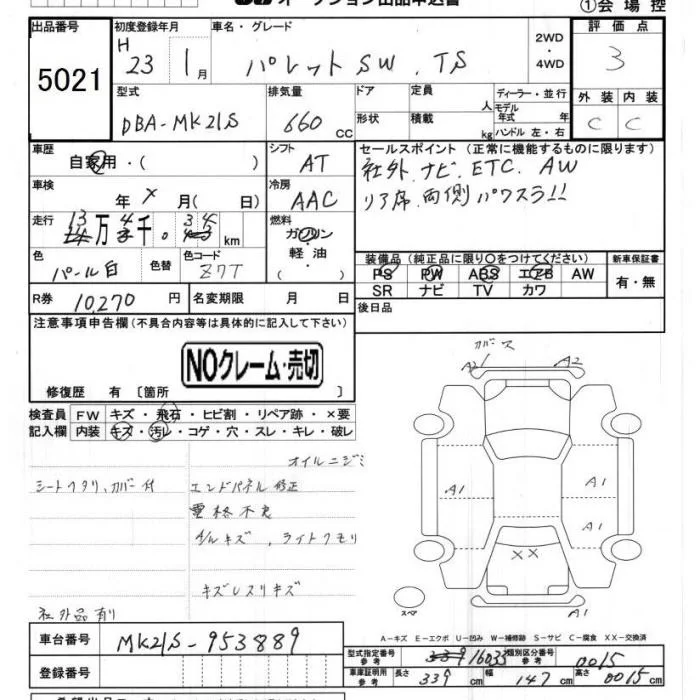 ①会場控
出品番号
5021
初度登録年月
H 23 1月
車名・グレード
パレットSW . TS
2WD
・
4WD
評価点
3
外装 内装
C C
型式
DBA-MK21S
排気量
660 cc
ドア
形状
定員
人
積載
kg
ディーラー・並行
モデル年式 年
ハンドル 左・右
車歴
自家用・( )
シフト
AT
セールスポイント (正常に機能するものに限ります)
社外.ナビ.ETC. AW
リア席.両側パワスラ!!
車検
年 × 月( 日)
冷房
AAC
走行
13 万 4 千。34 km
燃料
ガソリン
軽油
・( )
色
パール白
色替
色コード
Z7T
装備品 (純正品に限り○をつけてください)
PS PW ABS エアB AW
SR ナビ TV カワ
新車保証書
有・無
R券 10,270 円
名変期限 月 日
後日品
注意事項申告欄 (不具合内容等は具体的に記入して下さい)
NOクレーム・売切
修復歴 有 〔箇所 〕
検査員 FW キズ・飛石・ヒビ割・リペア跡・×要
記入欄 内装 キズ・汚レ・コゲ・穴・スレ・キレ・破レ
オイルニジミ
シートヘタリ,カバー付
エンドパネル修正
重格不良
小キズ,ライトクモリ
キズレスリキズ
社外品有り
カバース
A2 A2
A1 A1
A1
××
A1
スペア
A-キズ E-エクボ U-凹み W-補修跡 S-サビ C-腐食 XX-交換済
車台番号 MK21S-953889
登録番号
型式指定番号 参考 16033 類別区分番号 参考 0015
車庫証明用 参考 長さ 339 cm 幅 147 cm 高さ 0015 cm